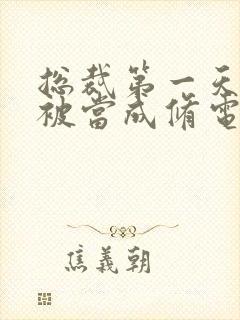 总裁第一天
被當成脩電
焦義朝